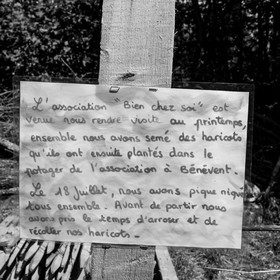 L'association "Bien chez soi" est
venue nous rendre visite au printemps,
ensemble nous avons semé des haricots
qu'ils ont ensuite plantés dans le
potager de l'association à Bénévent.
Le 18 Juillet, nous avons pique niqué
tous ensemble. Avant de partir nous
avons pris le temps d'arroser et de
récolter nos haricots.